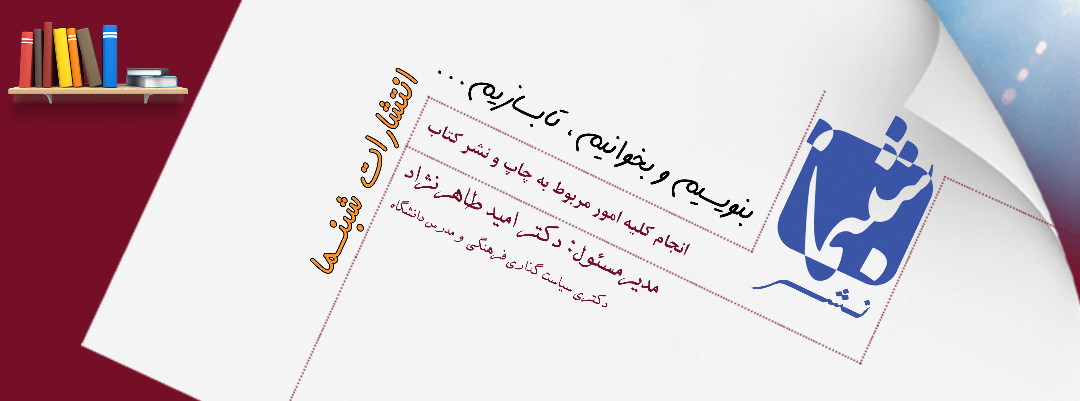 بنویسیم و بخوانیم، تا بسازیم...
انجام کلیه امور مربوط به چاپ و نشر کتاب
مدیر مسئول: دکتر امید طاهرنژاد
دکتری سیاست گذاری فرهنگی و مدرس دانشگاه
انتشارات شبنما
شبنما
نشر